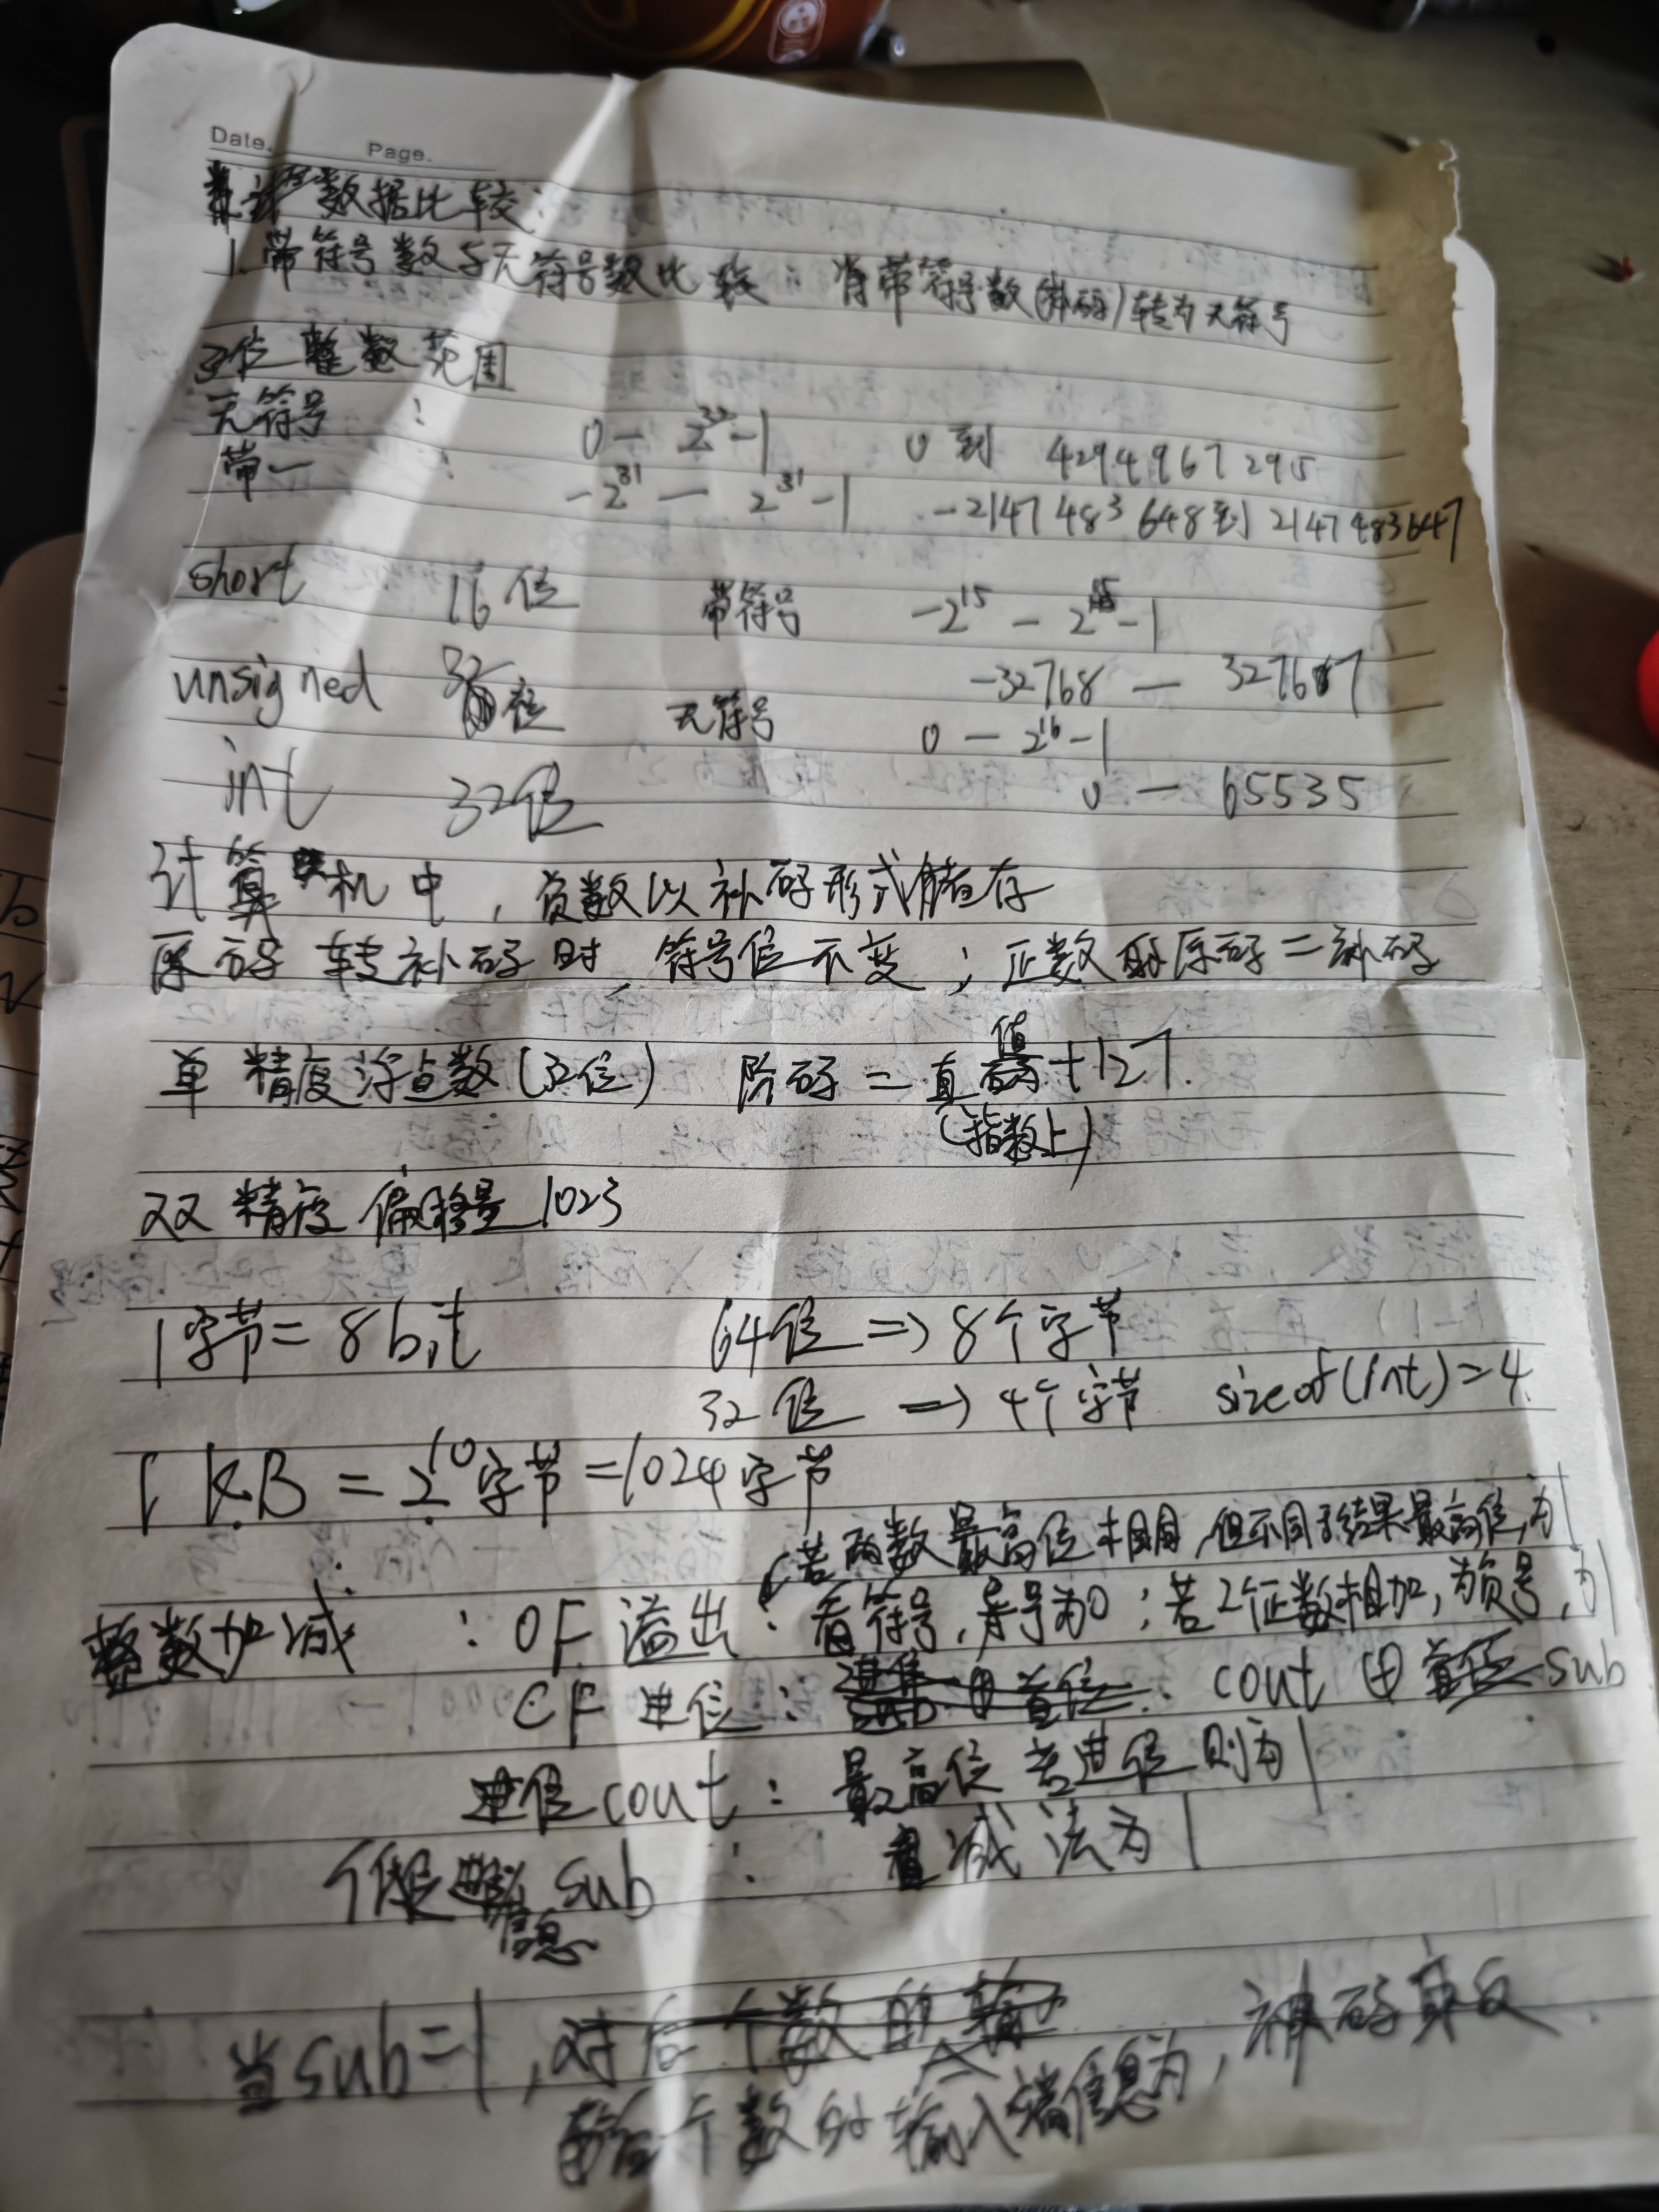 Date. Page.
数据比较:
1. 带符号数与无符号数比较: 将带符号数(补码)转为无符号
32位整数范围
无符号 : 0 — 2^32-1 0 到 4294967295
带— : -2^31 — 2^31-1 -2147483648到2147483647
short 16位 带符号 -2^15 — 2^15-1
-32768 — 32767
unsigned 32位 无符号 0 — 2^16-1
int 32位 0 — 65535
计算机中, 负数以补码形式储存
原码转补码时, 符号位不变; 正数 原码=补码
单精度浮点数(32位) 阶码=真值+127.
(指数上)
双精度偏移量1023
1字节=8bit 64位 => 8个字节
32位 => 4个字节 sizeof(int)=4.
1KB=2^10字节=1024字节
若两数最高位相同,但不同于结果最高位,为1
整数加减 : OF 溢出: 看符号,异号为0; 若2个正数相加,为负号,为1
CF 进位: cout ⊕ sub
进位cout: 最高位若进位则为1
低 信息 sub : 减法为1
当sub=1,
后一个数的输入端信息为, 补码取反